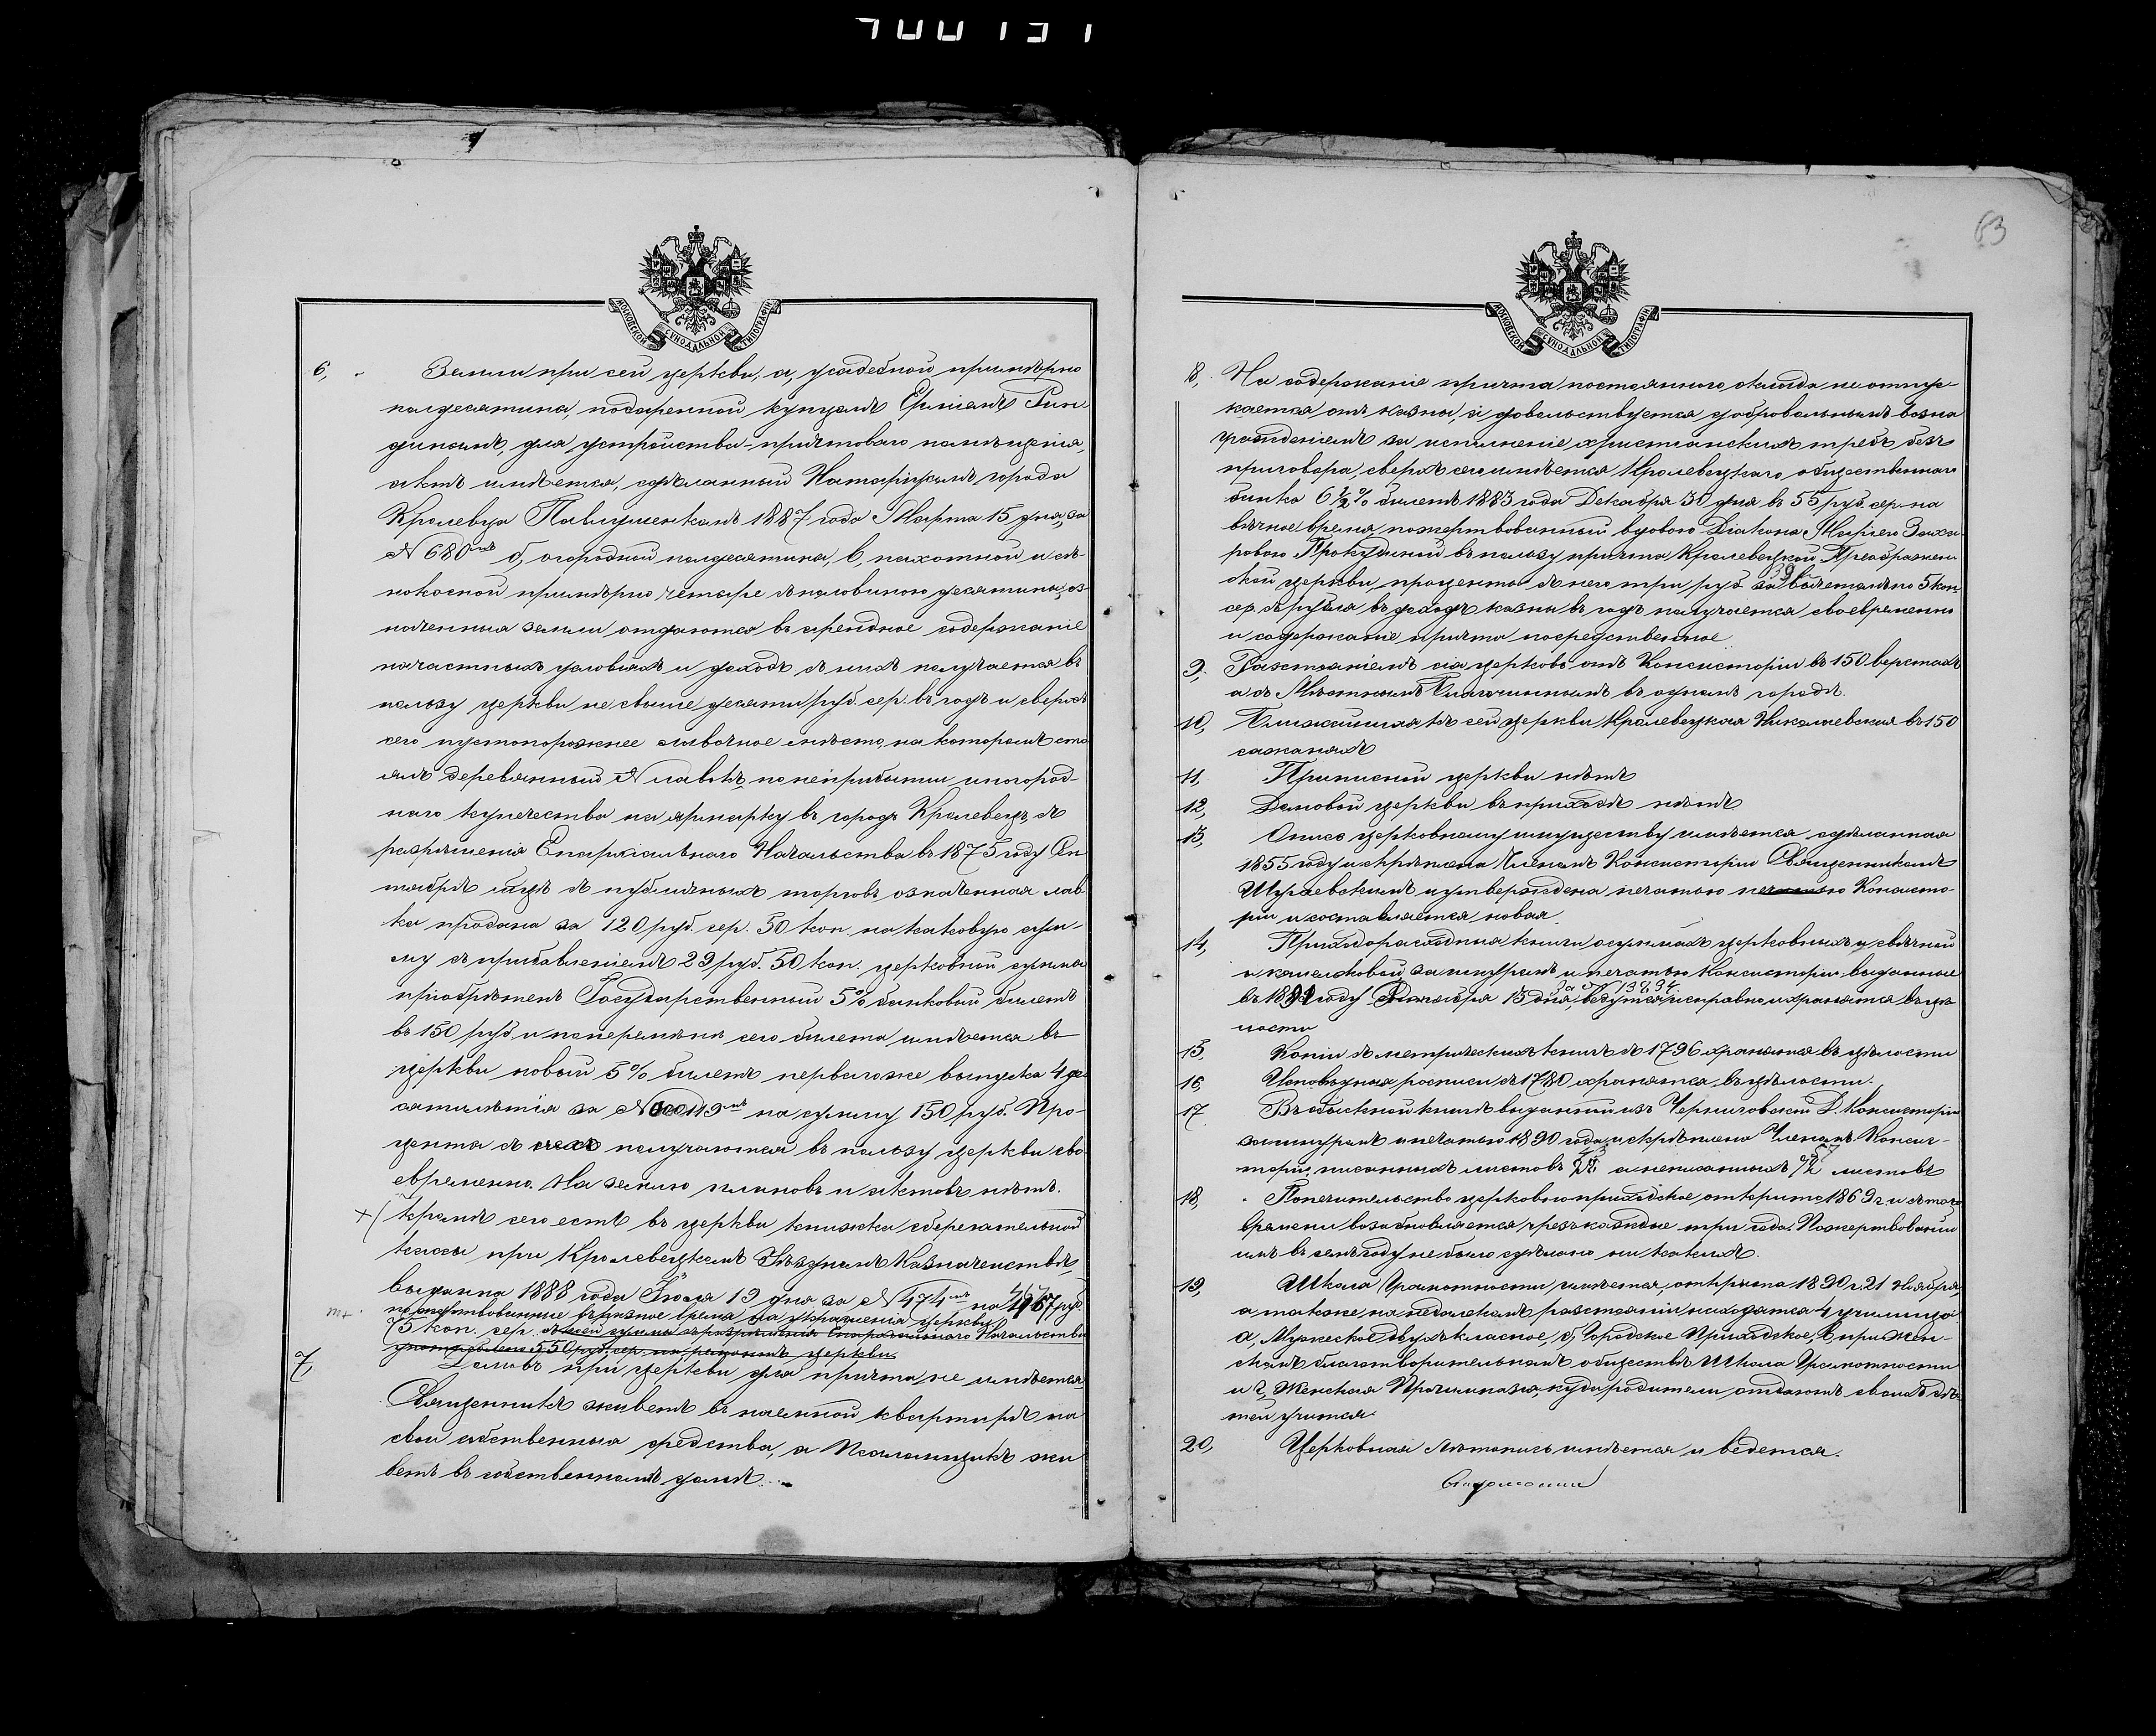 МОСКОВСКОЙ СИНОДАЛЬНОЙ ТИПОГРАФІИ
6, Земли при сей церкви, а, усадебной примѣрно
полдесятины, подаренной купцемъ
для устройства причтоваго помѣщенія,
актъ имѣется, сдѣланный Натаріусомъ города
Кролевца Павлушенкомъ 1887 года Марта 15 дня, за
N 680мъ б, огородной полдесятины, в, пахотной и сѣ-
нокосной примѣрно четыре съ половиною десятины, оз-
наченныя земли отдаются въ арендное содержаніе
на частныхъ условіяхъ и доходъ съ нихъ получается въ
пользу церкви не свыше десяти руб. сер. въ годъ и сверхъ
сего пустопорожнее лавочное мѣсто, на которомъ сто
ялъ деревянный лавокъ, по неприбытіи иногород-
наго купечества на ярмарку въ городъ Кролевецъ, съ
разрѣшенія Епархіальнаго Начальства въ 1875 году Сен
тября съ публичныхъ торговъ означенная лав
ка продана за 120 руб. сер. 50 коп. на каковую сум-
му съ прибавленіемъ 29 руб. 50 коп. церковной суммы
пріобрѣтенъ Государственный 5% банковый билетъ
въ 150 руб. и по перемѣнѣ сего билета имѣется въ
церкви новый 5% билетъ перваго же выпуска 4 де
сятилѣтія за на сумму 150 руб. Про-
центы съ получаются въ пользу церкви сво
евременно. На землю плановъ и актовъ нѣтъ.
Кромѣ сего есть въ церкви книжка сберегательной
кассы при Кролевецкомъ Уѣздномъ Казначействѣ,
выдана 1888 года Іюля 19 дня за N 474мъ на руб.
пожертвованные въ разное время на украшенія церкви
75 коп. сер. съ сей суммы съ разрѣшенія Епархіальнаго Начальства
употреблено 550 руб. сер. на ремонтъ церкви.
7, Домовъ при церкви для причта не имѣется,
Священникъ живетъ въ наемной квартирѣ на
свои собственныя средства, а Псаломщикъ жи
ветъ въ собственномъ домѣ.
63
МОСКОВСКОЙ СИНОДАЛЬНОЙ ТИПОГРАФІИ
8, На содержаніе причта постояннаго оклада не отпус-
кается отъ казны, а довольствуется добровольнымъ возна
гражденіемъ за исполненіе христіанскихъ требъ безъ
приговора, сверхъ сего имѣется Кролевецкаго общественнаго
банка 6½% билетъ 1883 года Декабря 30 дня въ 55 руб. сер. на
вѣчное время пожертвованный вдовою Діакона Маріею Заха
ровою Прокудиной въ пользу причта Кролевецкой Преображен
ской церкви, проценты съ него три руб. за вычетомъ по 5 коп.
сер. съ рубля въ доходъ казны въ годъ получается своевременно
и содержаніе причта посредственное.
9, Разстояніемъ сія церковь отъ Консисторіи въ 150 верстахъ
а съ Мѣстнымъ Благочиннымъ въ одномъ городѣ.
10, Ближайшая къ сей церкви Кролевецкая Николаевская въ 150
саженяхъ
11, Приписной церкви нѣтъ
12, Домовой церкви въ приходѣ нѣтъ
13, Опись церковному имуществу имѣется сдѣланная
1855 году и скрѣплена Членомъ Консисторіи Священникомъ
и утверждена печатью печатью Консисто-
ріи и составляется новая.
14, Приходорасходныя книги о суммахъ церковныхъ и свѣчной
и кошельковой, за шнуромъ и печатью Консисторіи выданныя
за N 13234
въ году 15 дня, ведутся исправно и хранятся въ цѣ-
лости
15, Копіи съ метрическихъ книгъ съ 1796 хранятся въ цѣлости
16, Исповѣдныя росписи съ 1780 хранятся въ цѣлости.
17 Въ обыскной книгѣ выданной изъ Черниговской Д. Консисторіи
за шнуромъ и печатью 1890 года и скрѣплена Членомъ Консис-
торіи, писанныхъ листовъ а неписанныхъ листовъ
18, Попечительство церковно приходское открыто 1869 г. и съ того
времени возобновляется чрезъ каждые три года. Пожертвованій
имъ въ семъ году не было сдѣлано ни какихъ.
19, Школа Грамотности имѣется, открыта 1890 г. 21 Ноября
а также на недалекомъ разстояніи находятся 4 училища
а, Мужеское двухъ класное, б, Городское Приходское, в, при Жен-
скомъ благотворительномъ обществѣ Школа Грамотности
и г, Женская Прогимназія, куда родители отдаютъ своихъ дѣ-
тей учиться.
20, Церковная лѣтопись имѣется и ведется.